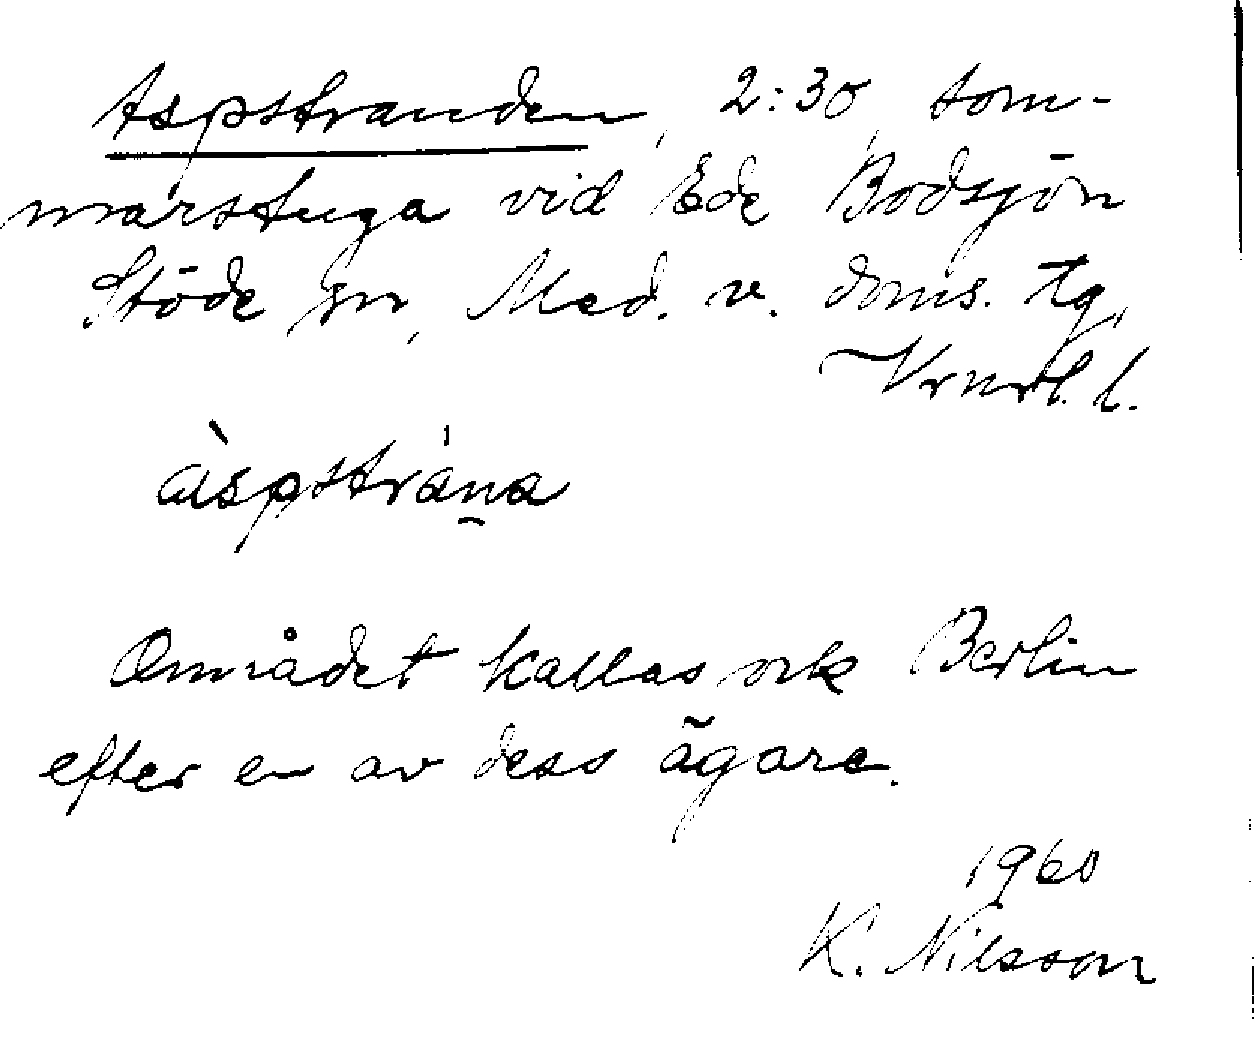 Aspstranden, 2:30, som-
marstuga vid Ede Bodsjön
Stöde sn, Med. v. doms. tg,
Vrnrl. l.
àspstrána
Området kallas ock Berlin
efter en av dess ägare.
1960
K. Nilsson